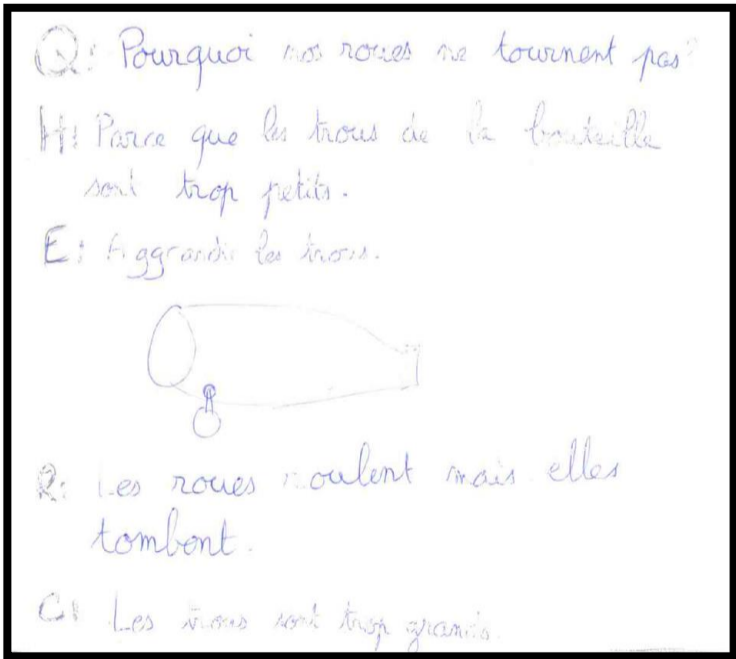 Q: Pourquoi nos roues ne tournent pas?
H: Parce que les trous de la bouteille
sont trop petits.
E: Aggrandir les trous.
R: Les roues roulent mais elles
tombent.
C: Les trous sont trop grands.